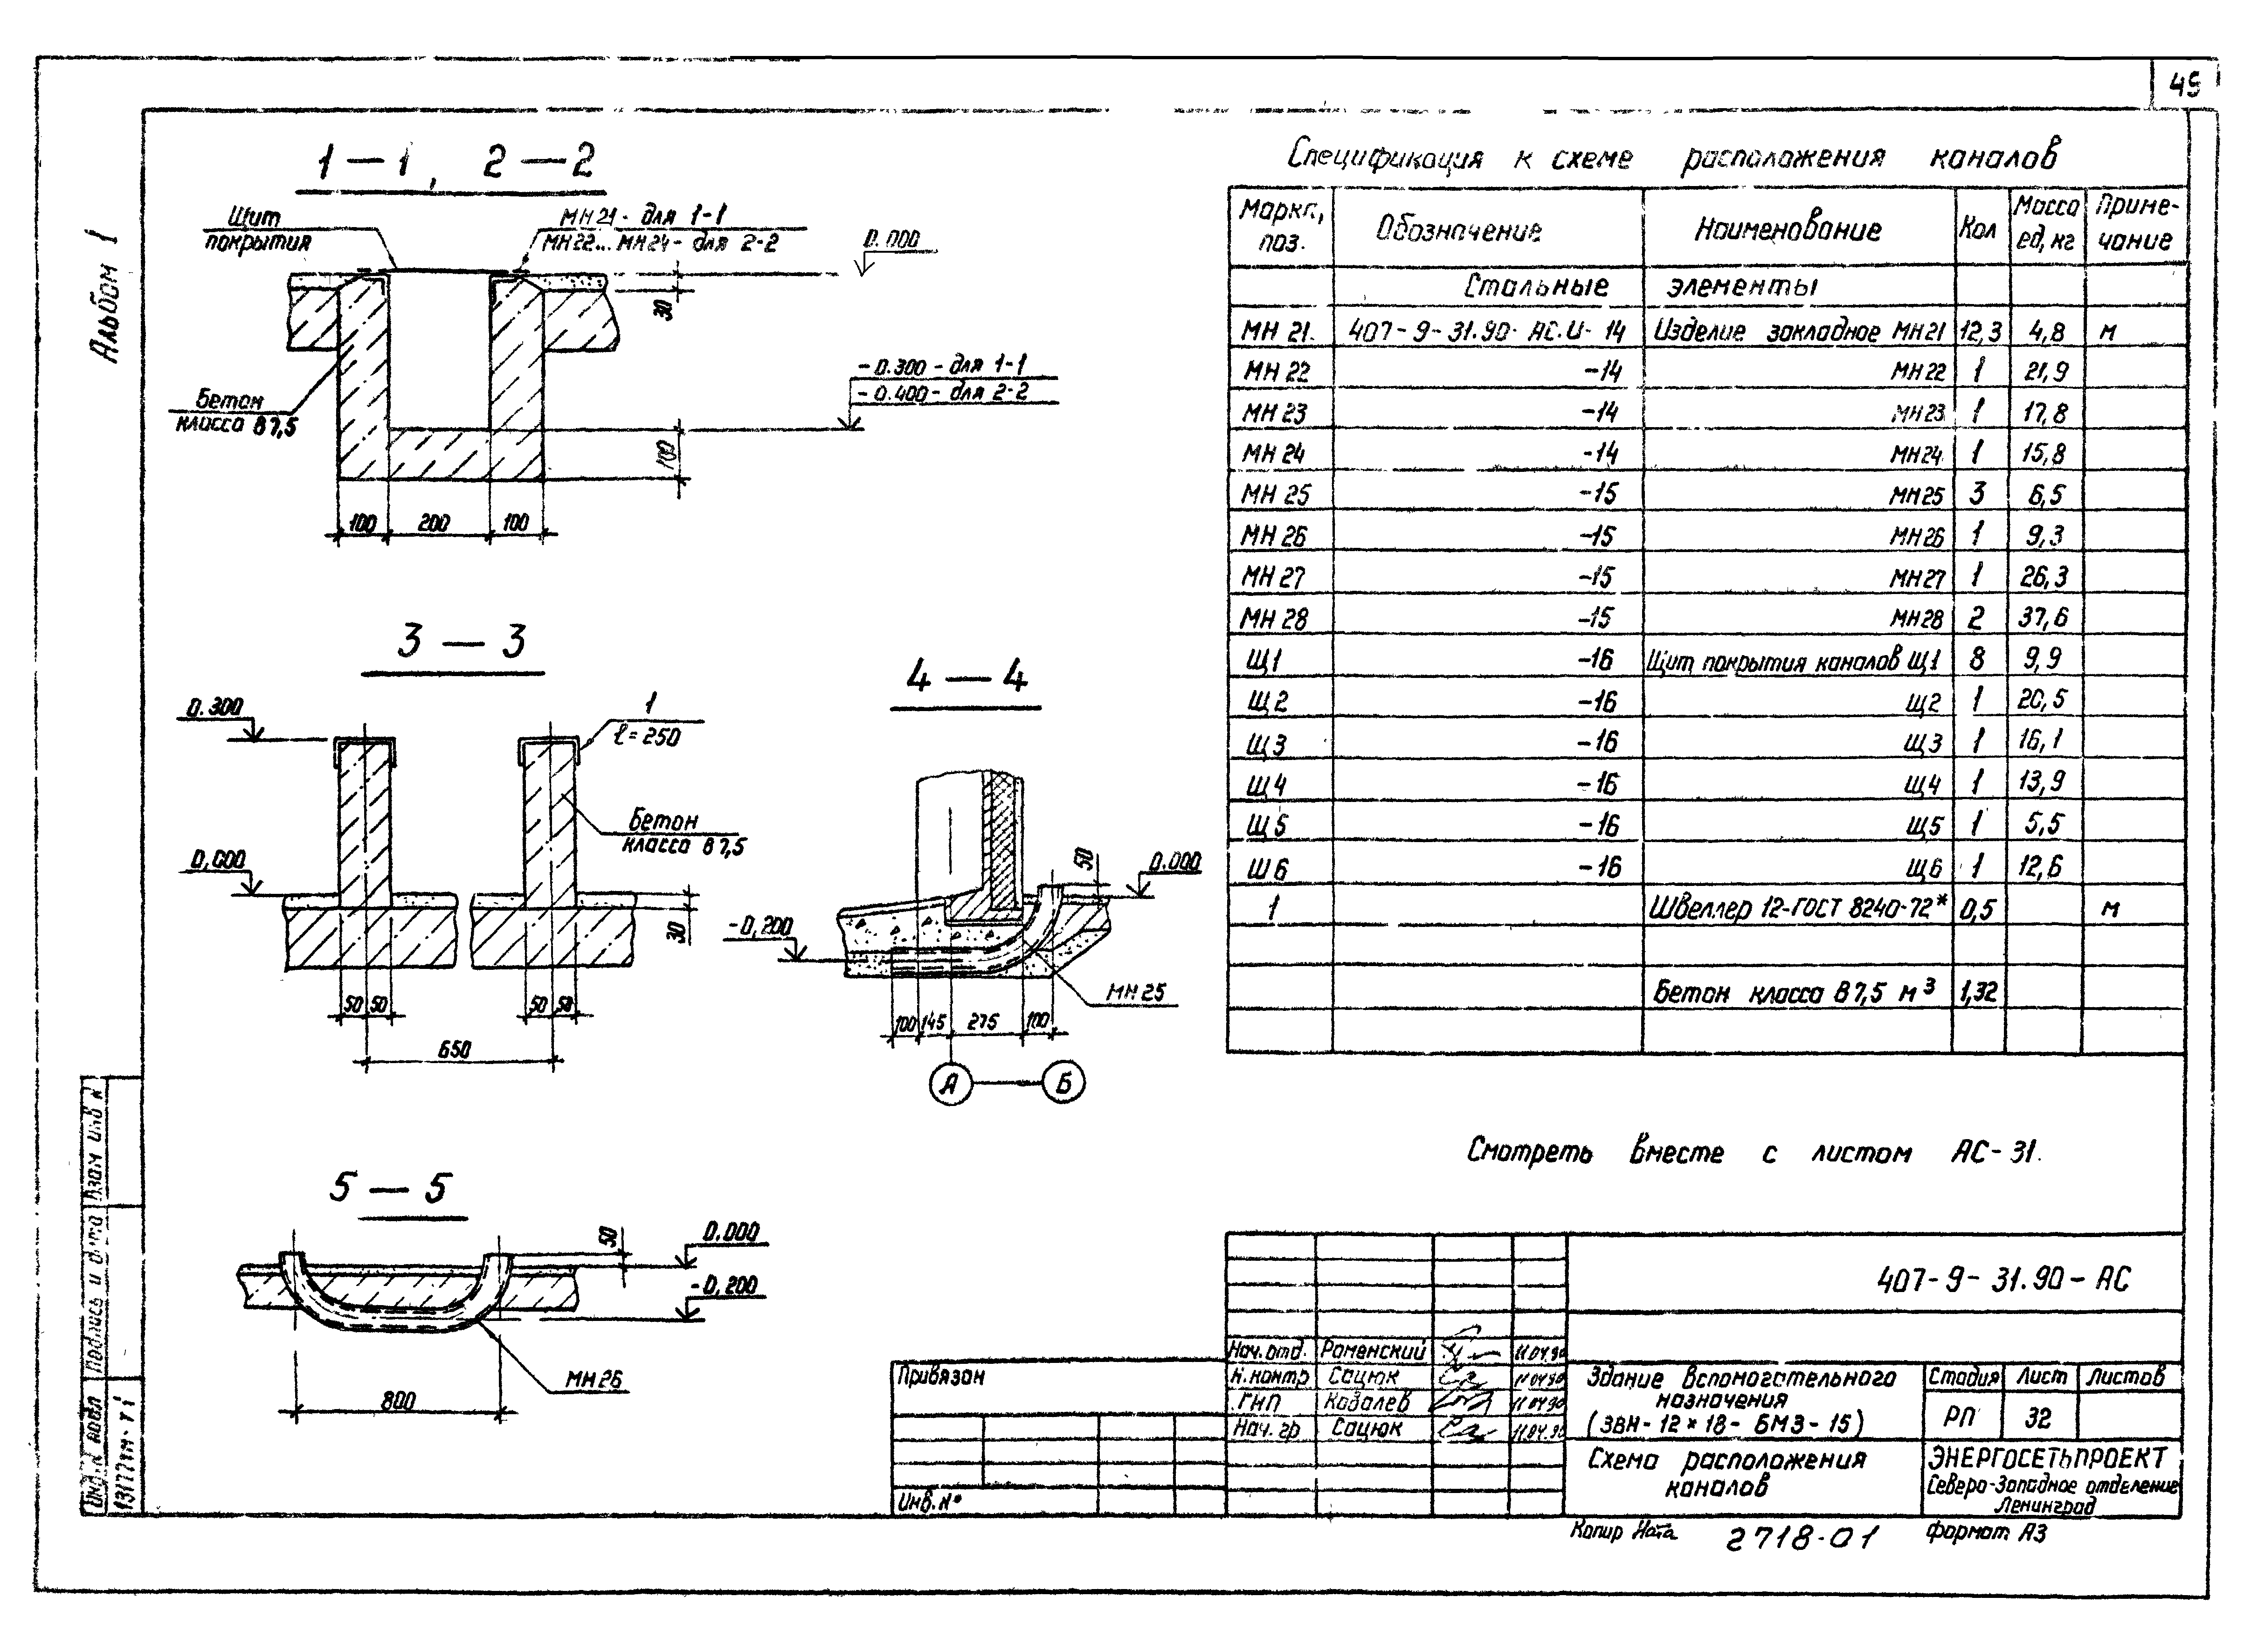 49
Альбом 1
1—1, 2—2
Щит
покрытия
МН21- для 1-1
МН22... МН24- для 2-2
0.000
30
-0.300 - для 1-1
-0.400 - для 2-2
Бетон
класса В7,5
100
100 200 100
3 — 3
0.300
1
ℓ=250
Бетон
класса В7,5
0,000
30
50 50 50 50
650
4 — 4
50
0.000
-0,200
МН25
100 145 275 100
А Б
5 — 5
50
0.000
-0,200
МН26
800
Спецификация к схеме расположения каналов
Марка, поз. Обозначение Наименование Кол Масса ед, кг Приме-чание
Стальные элементы
МН 21. 407-9-31.90-АС.И-14 Изделие закладное МН21 12,3 4,8 м
МН 22 -14 МН22 1 21,9
МН 23 -14 МН23 1 17,8
МН 24 -14 МН24 1 15,8
МН 25 -15 МН25 3 6,5
МН 26 -15 МН26 1 9,3
МН 27 -15 МН27 1 26,3
МН 28 -15 МН28 2 37,6
Щ1 -16 Щит покрытия каналов Щ1 8 9,9
Щ2 -16 Щ2 1 20,5
Щ3 -16 Щ3 1 16,1
Щ4 -16 Щ4 1 13,9
Щ5 -16 Щ5 1 5,5
Ш6 -16 Щ6 1 12,6
1 Швеллер 12-ГОСТ 8240-72* 0,5 м
Бетон класса В7,5 м³ 1,32
Смотреть вместе с листом АС-31.
407-9-31.90-АС
Нач.отд. Роменский 11.04.90
Н.контр Сацюк 11.04.90
ГИП Ковалев 11.04.90
Нач. гр Сацюк 11.04.90
Привязан
Инв. №
Здание вспомогательного
назначения
(ЗВН-12×18-БМЗ-15)
Стадия Лист Листов
РП 32
Схема расположения
каналов
ЭНЕРГОСЕТЬПРОЕКТ
Северо-Западное отделение
Ленинград
Копир Ната 2718-01 Формат А3
Подпись и дата
Взам инв